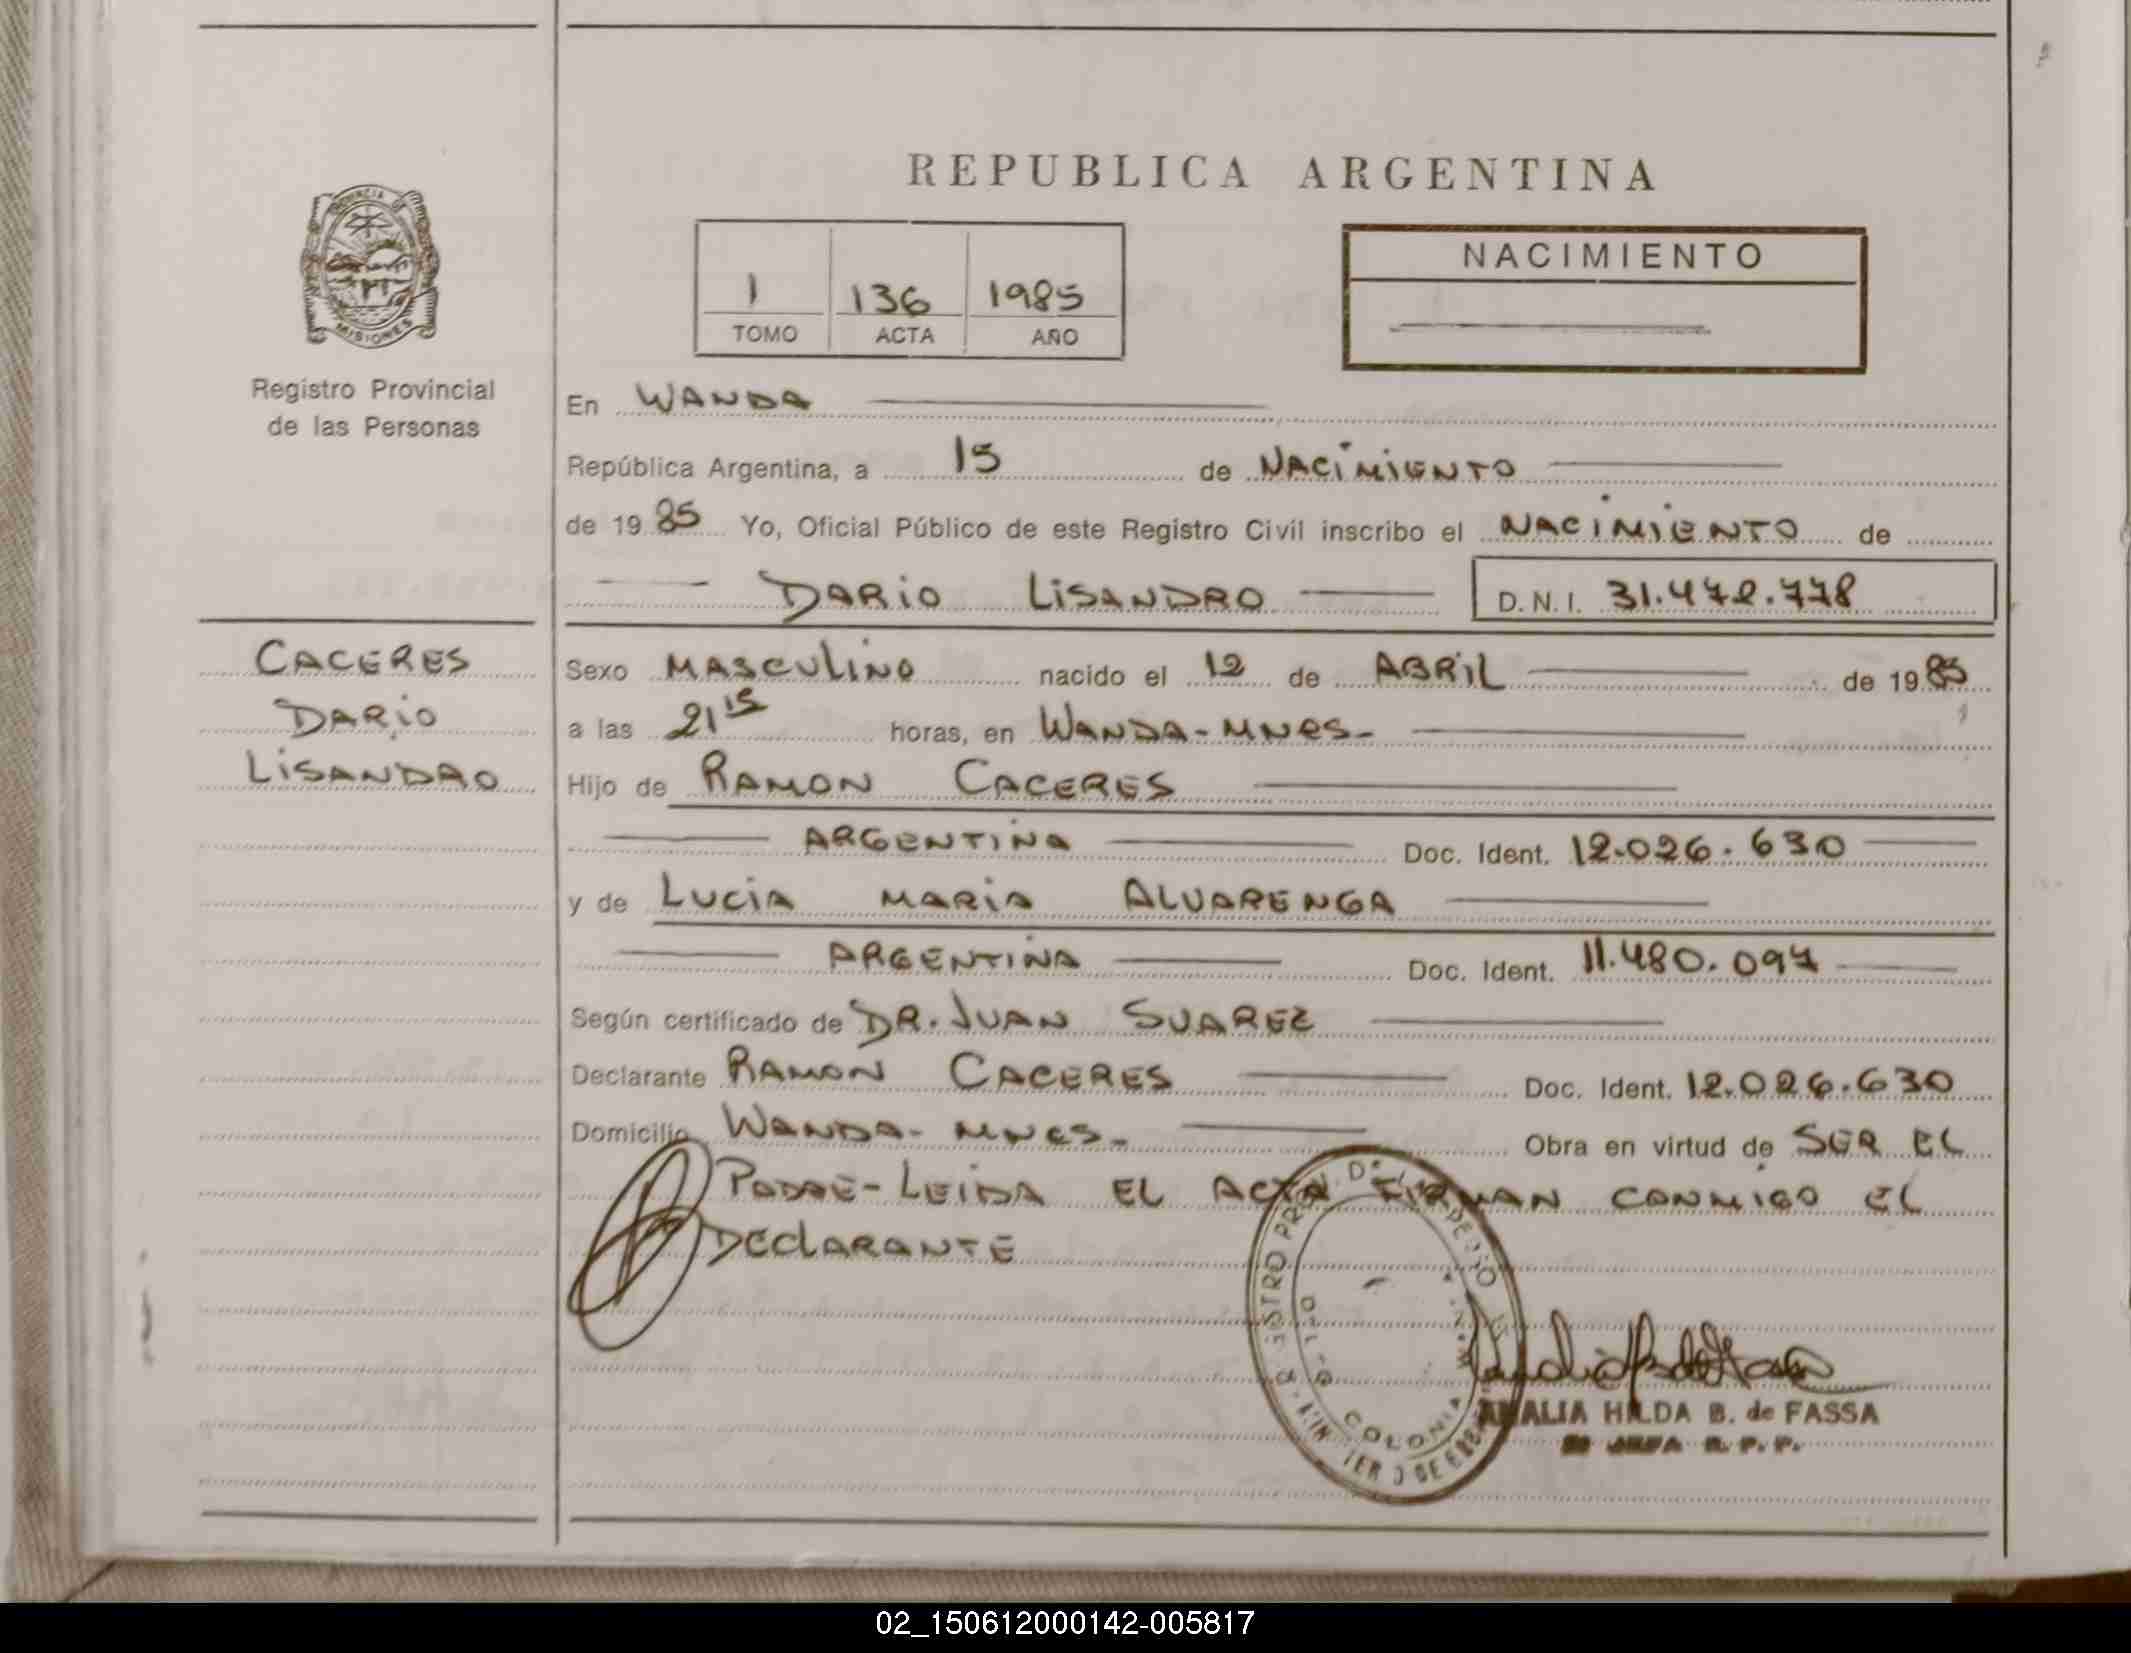 REPUBLICA ARGENTINA
PROVINCIA DE
MISIONES
Registro Provincial
de las Personas
1 136 1985
TOMO ACTA AÑO
NACIMIENTO
En WANDA
República Argentina, a 15 de NACIMIENTO
de 1985 Yo, Oficial Público de este Registro Civil inscribo el NACIMIENTO de
DARIO LISANDRO D.N.I. 31.472.778
CACERES
DARIO
LISANDRO
Sexo MASCULINO nacido el 12 de ABRIL de 1985
a las 21 15 horas, en WANDA-MNES-
Hijo de RAMON CACERES
ARGENTINA Doc. Ident. 12.026.630
y de LUCIA MARIA ALVARENGA
ARGENTINA Doc. Ident. 11.480.097
Según certificado de DR. JUAN SUAREZ
Declarante RAMON CACERES Doc. Ident. 12.026.630
Domicilio WANDA- MNES- Obra en virtud de SER EL
PADRE-LEIDA EL ACTA FIRMAN CONMIGO EL
DECLARANTE
COLONIA
AMALIA HILDA B. de FASSA
JEFA R. P. P.
02_150612000142-005817